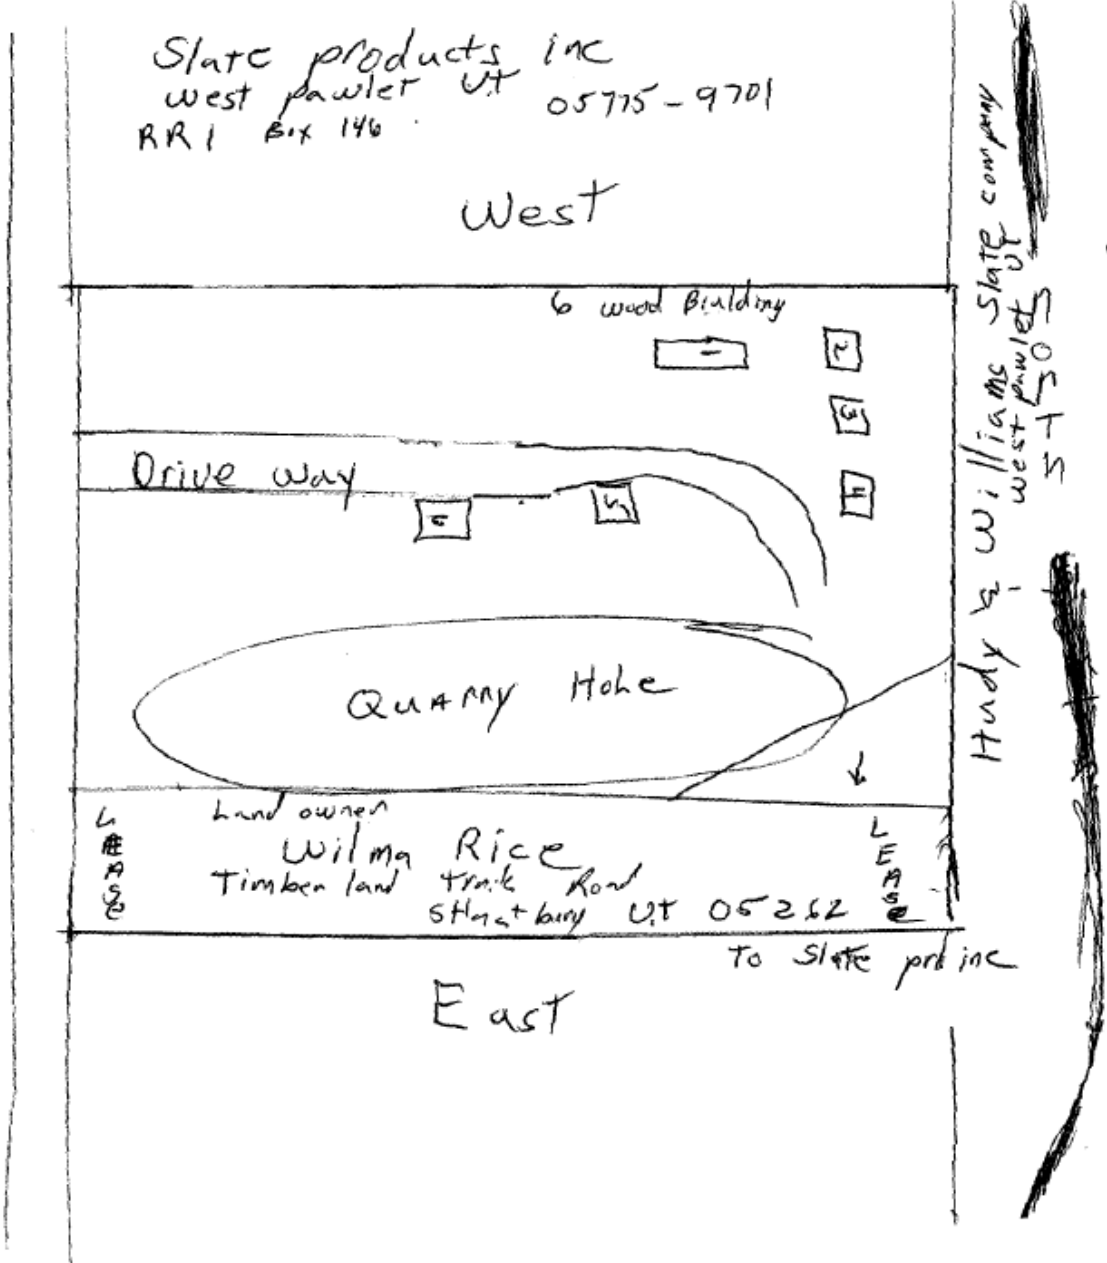 Slate products inc
West pawlet VT 05775-9701
RR1 Box 146
West
6 wood Biulding
1
2
3
4
5
Drive way
Quarry Hole
Land owner
Wilma Rice
Timber land Road
VT 05262
LEASE
LEASE
To Slate prd inc
East
& Williams Slate company
West pawlet VT